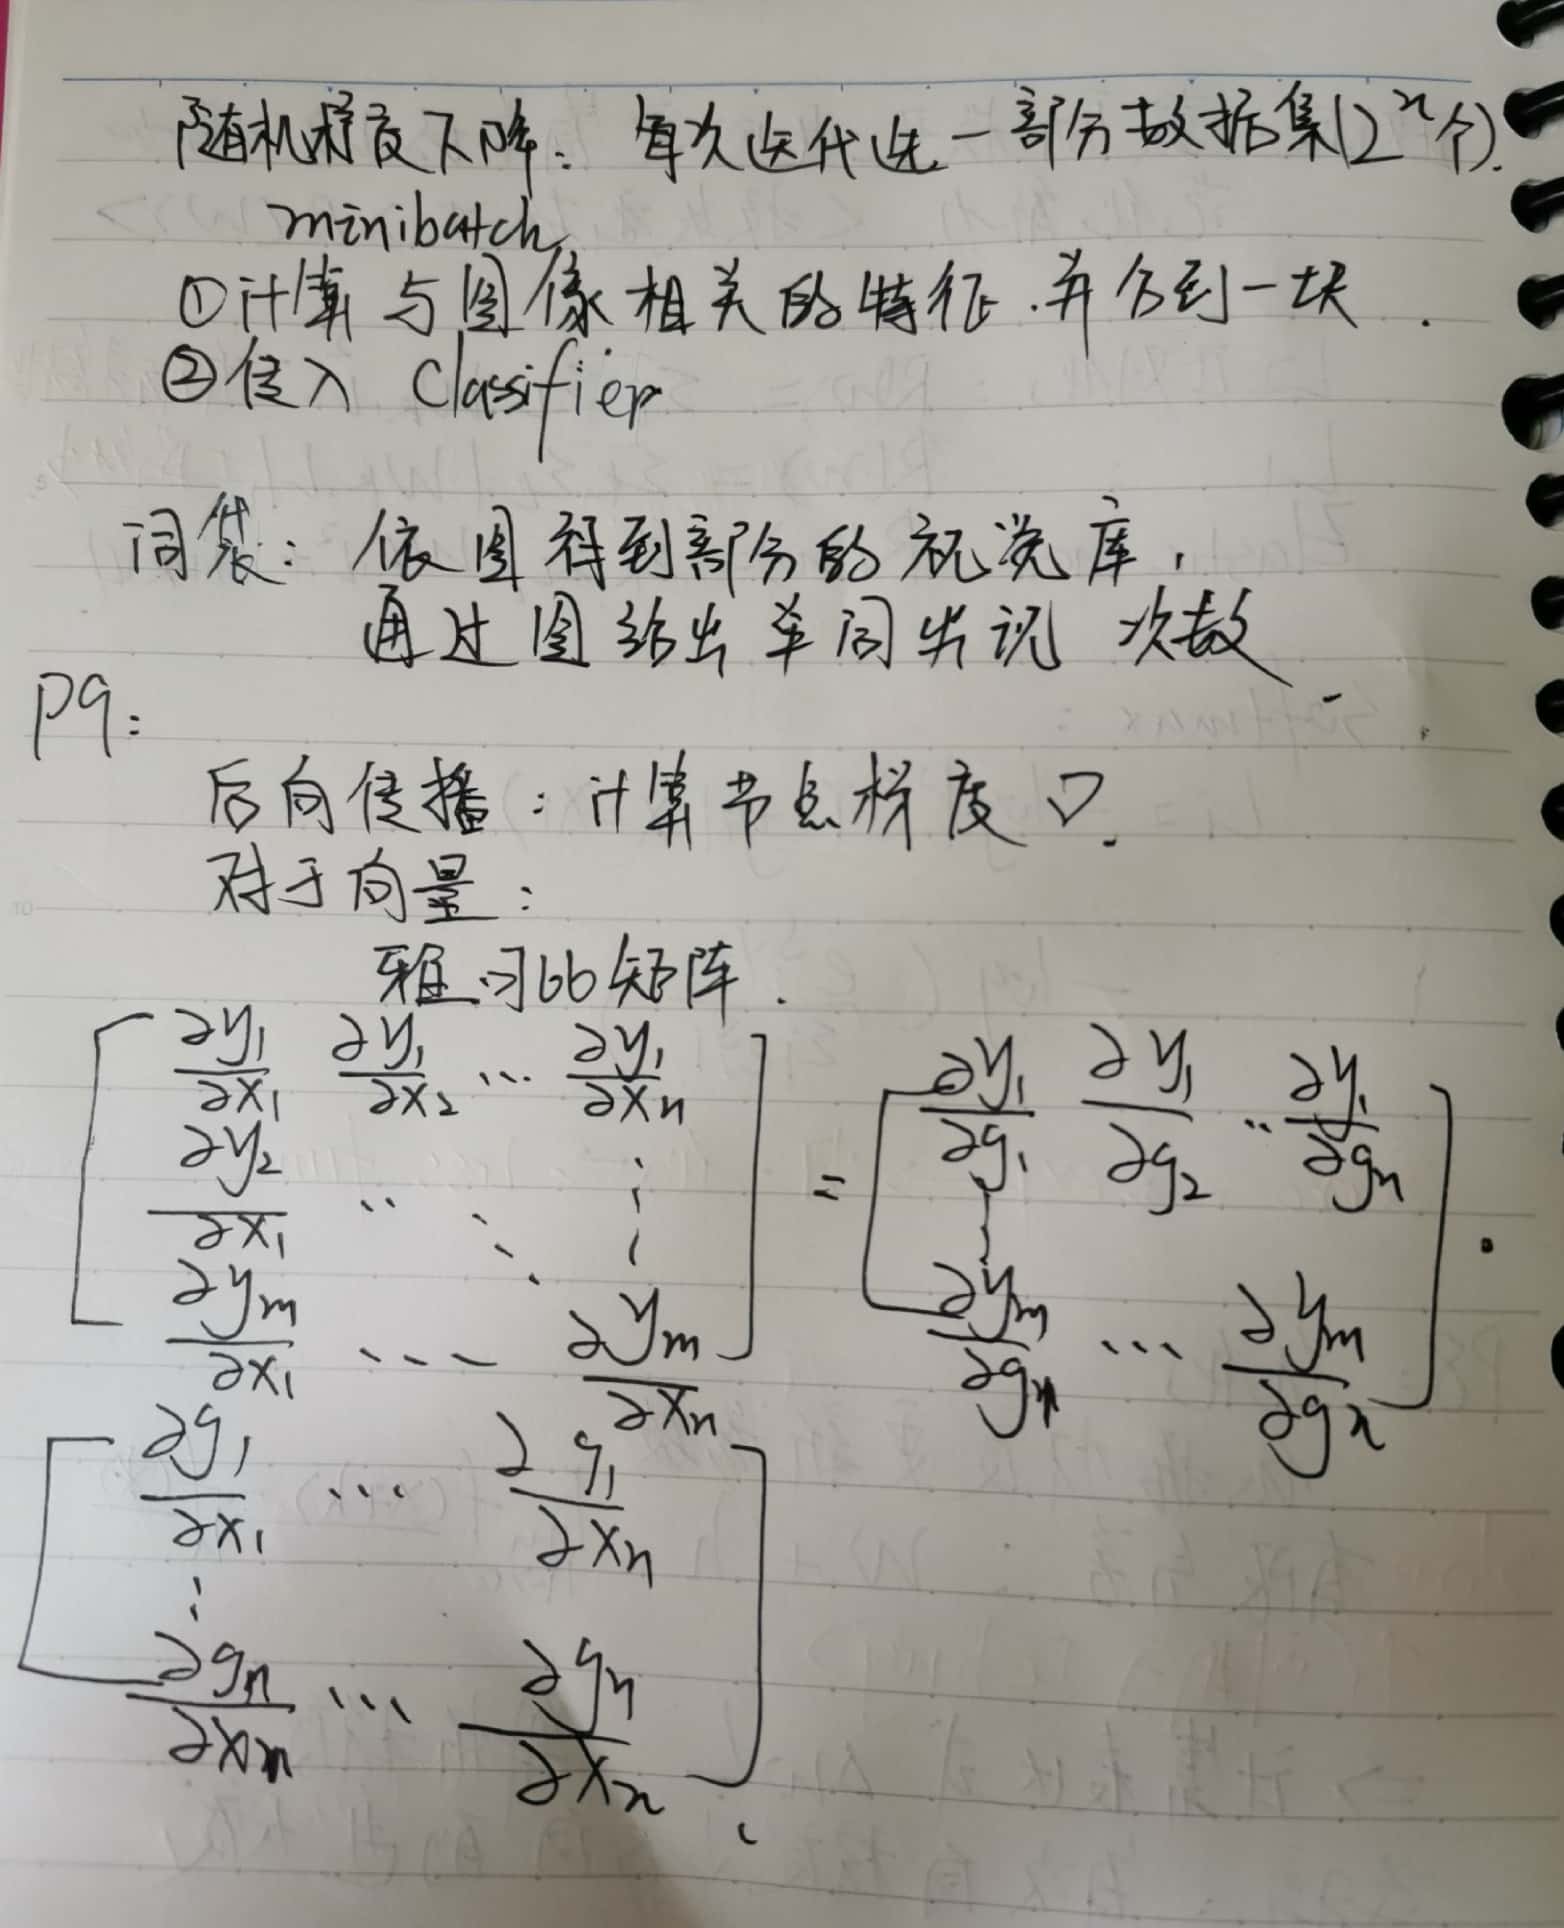 随机梯度下降：每次迭代选一部分数据集(2^n个).
minibatch
①计算与图像相关的特征.并合到一块.
②传入 Classifier
词袋：依图得到部分的视觉库，
通过图给出单词出现 次数.
P9:
后向传播：计算节点梯度▽.
对于向量：
雅可比矩阵.
[∂y₁/∂x₁ ∂y₁/∂x₂ ... ∂y₁/∂xₙ
∂y₂/∂x₁ ·· ⋱ ⋮
∂yₘ/∂x₁ ... ∂yₘ/∂xₙ]
= [∂y₁/∂g₁ ∂y₁/∂g₂ ·· ∂y₁/∂gₙ
⋮
∂yₘ/∂gₙ ... ∂yₘ/∂gₙ] ·
[∂g₁/∂x₁ ... ∂g₁/∂xₙ
⋮
∂gₙ/∂xₙ ... ∂gₙ/∂xₙ].